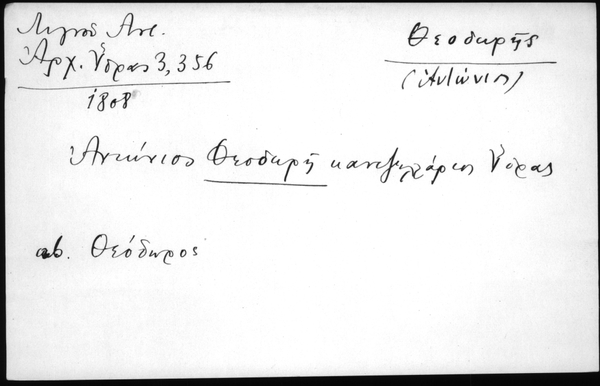 Λιγνοῦ Ἀντ.
Ἀρχ. Ὕδρας 3, 356
1808
Θεοδωρῆς
(Ἀντώνιος)
Ἀντώνιος Θεοδωρῆ καντζηλάριος Ὕδρας
ab. Θεόδωρος